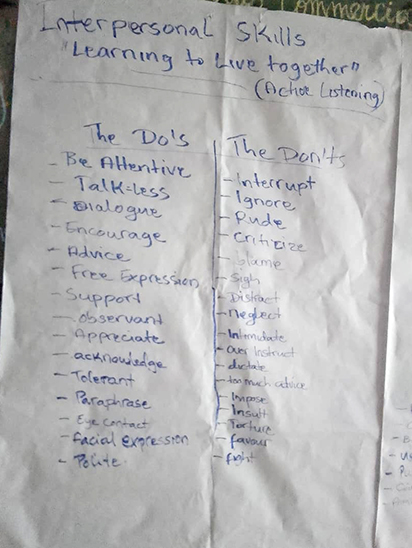 Commercio
Interpersonal Skills
"Learning to Live together"
(Active Listening)
The Do's
- Be Attentive
- Talk=less
- Dialogue
- Encourage
- Advice
- Free Expression
- Support
- observant
- Appreciate
- acknowledge
- Tolerant
- Paraphrase
- Eye contact
- Facial expression
- Polite.
The Don'ts
- Interrupt
- Ignore
- Rude
- Criticize
- blame
- Sigh
- Distract
- neglect
- Intimidate
- Over Instruct
- dictate
- too much advice
- Impose
- Insult
- Torture
- favour
- fight